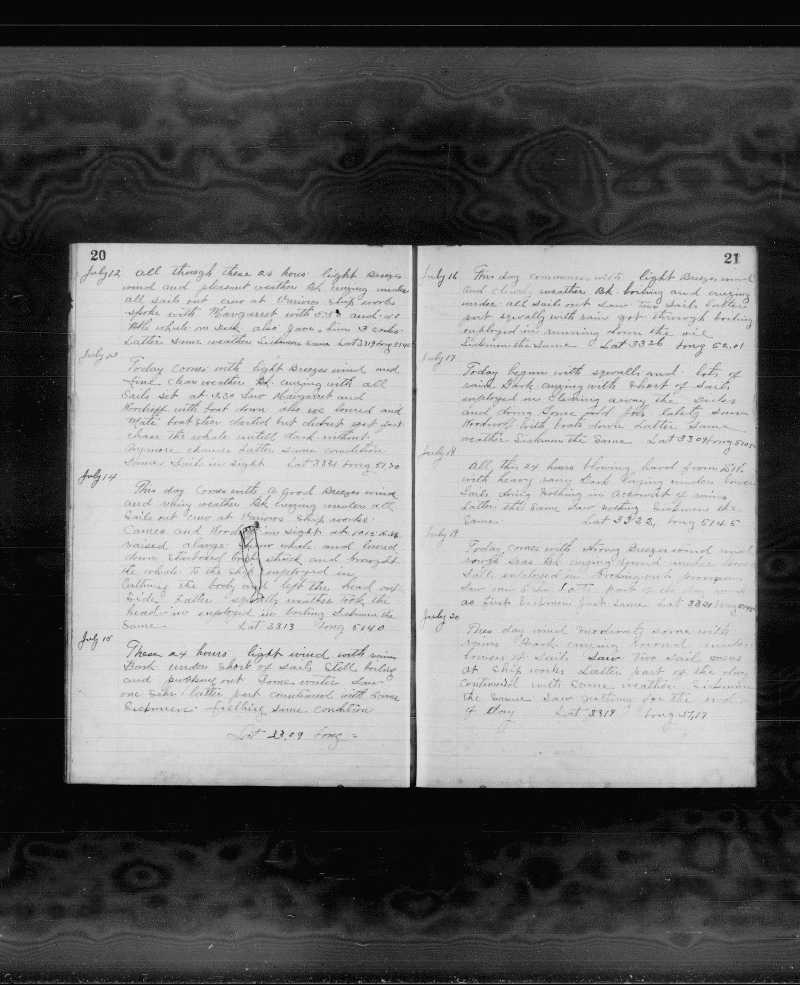 20
July 12 all through these 24 hours light Breezes
wind and pleasant weather Bk cruzing under
all sails out crew at Various ship works
spoke with Margarret with 535 and 40
Bbls whale on Deck also gave him 3 casks
Latter same weather Sickmen same Lat 3319 Long 5140
July 13
Today comes with light Breezes wind and
fine clear weather Bk cruzing with all
Sails set at 1.30 Saw Margarret and
Woodruff with boat down also we loured and
Mate boatsteer darted but didnot get fast
chase the whale untill dark without
anymore chances Latter same condition
Some Sails in sight Lat 3321 Long 5130
July 14
This day comes with a good Breezes wind
and rainy weather Bk cruzing under all
Sails out crew at Various Ship works
Cameo and in sight at 1015 A.M.
raised alarge whale and loured
down Starbord boat struck and brought
the whale to the Ship employed in
Cutting the body and left the head out
Side Latter squally weather Took the
head in enployed in boiling Sickmen the
Same Lat 3313 Long 5140
July 15
These 24 hours light wind with rain
Bark under Short of Sails Still boiling
and out Some water Saw
one Latter part countinued with Same
Sickmen same condition
Lat 33,09 Long =
21
July 16 This day commences with light Breezes wind
and cloudy weather Bk boiling and cruzing
under all Sails out Saw two Sails latter
part squally with rain got through boiling
employed in running down the oil
Sickmen the Same Lat 3326 Long 52,01
July 17
Today began with squalls and lots of
rain Bark cruzing with Short of Sails
employed in Cleaning away the
and doing Some odd Jobs lately Saw
Woodruf with boats down Latter Same
weather Sickmen the Same Lat 3309 Long
July 18
All this 24 hours blowing hard from
with heavy rain Bark laying under lower
Sails doing Nothing in Accounst of rains
Latter the Same Saw Nothing Sickmen the
Same Lat 3322, Long 5145
July 19
Today comes with strong Breezes wind and
rough Seas Bk cruzing under lower
Sails employed in Breaking out provisions
Saw one Late part of the day wind
as first Sickmen Just Same Lat 3321 Long
July 20
Thes day wind moderatly some with
rains Bark cruzing under
lower of Sails Saw two Sail
at Ship works Latter part of the day
Countinued with Same weather Sickmen
the Same Saw Nothing for the end
of day Lat 3319 Long